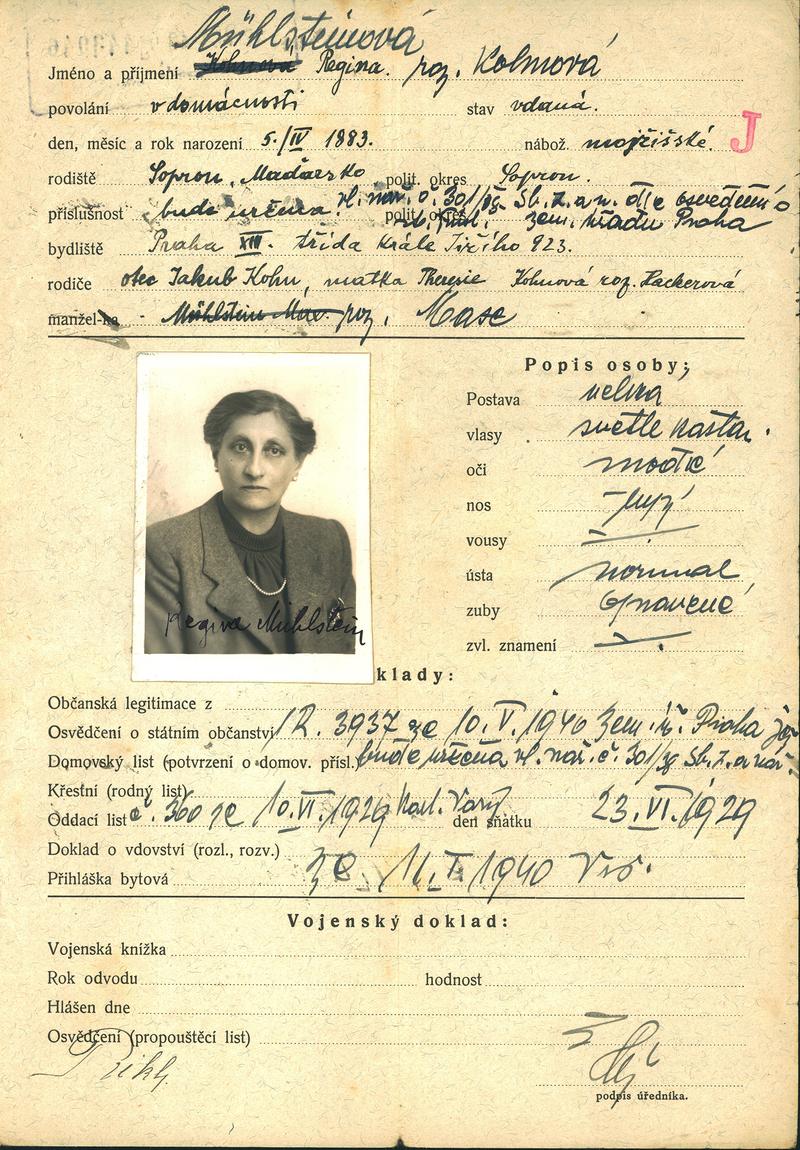 Mühlsteinová
Jméno a příjmení Regina. roz. Kohnová
povolání v domácnosti stav vdaná.
den, měsíc a rok narození 5./IV 1883. nábož. mojžíšské. J
rodiště Sopron, Maďarsko polit. okres Sopron.
příslušnost bude určena vl. nař. č. 301/39 Sb. z. a n. dle osvědčení
polit. okres zem. úřadu Praha
bydliště Praha XIII. třída krále Jiřího 923.
rodiče otec Jakub Kohn, matka Theresie Kohnová roz. Hackerová
manžel-ka Mühlstein Max. roz.
Popis osoby:
Postava velká
vlasy světle kaštan.
oči modré
nos
vousy —
ústa normal
zuby opravené
zvl. znamení —
Regina Mühlstein
klady:
Občanská legitimace z
Osvědčení o státním občanství R. 3937 ze 10.V.1940 Zem. úř. Praha
Domovský list (potvrzení o domov. přísl.) bude určena vl. nař. č. 301/39 Sb. z. a nař.
Křestní (rodný list)
Oddací list č. 360 ze 10.VI.1929 Karl. Vary den sňatku 23.VI.1929
Doklad o vdovství (rozl., rozv.)
Přihláška bytová ze 11.I.1940
Vojenský doklad:
Vojenská knížka
Rok odvodu hodnost
Hlášen dne
Osvědčení (propouštěcí list)
podpis úředníka.